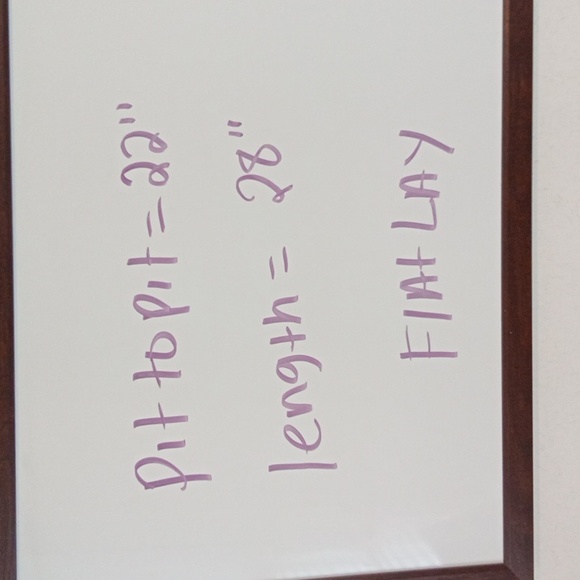 pit to pit = 22"
length = 28"
FlAt LAY